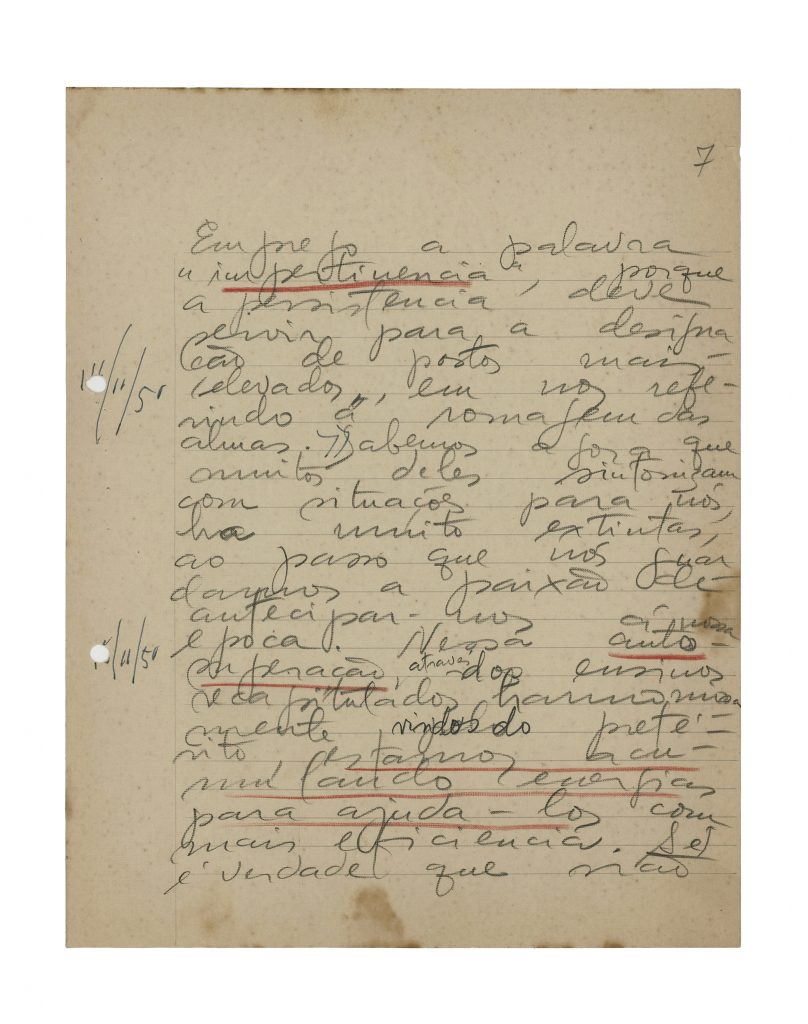 7
Emprego a palavra
"impertinencia", porque
a persistencia deve
servir para a designa
ção de postos mais
elevados, em nos refe-
rindo á romagem das
almas. Sabemos agora que
muitos deles sintonizam
com situações para nós,
ha muito extintas,
ao passo que nós guar
damos a paixão de
antecipar-nos á nossa
época. Nessa auto-
superação, atravez dos ensinos
recapitulados harmoniosa
mente vindos do preté-
rito, estamos acu-
mulando energias
para ajuda-los com
mais eficiencia. Se
é verdade que não
11/50
11/50